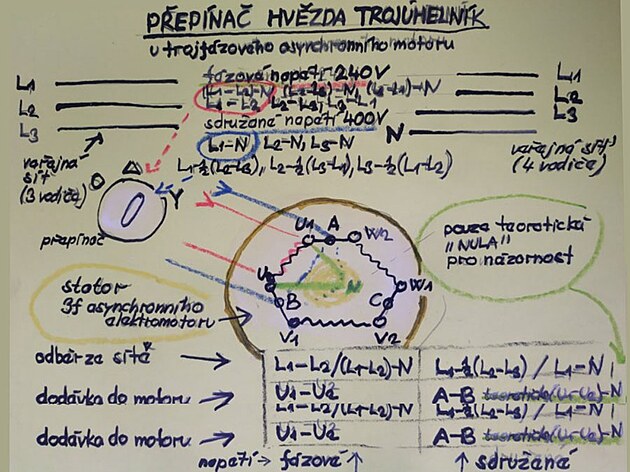 PŘEPÍNAČ HVĚZDA TROJÚHELNÍK
u trojfázového asynchronního motoru
fázová napětí 240V
L1
L2
L3
(L1-L2)-N (L2-L3)-N (L3-L1)-N
L1-L2, L2-L3, L3-L1
sdružená napětí 400V
L1-N, L2-N, L3-N
N
L1
L2
L3
veřejná síť (3 vodiče)
veřejná síť (4 vodiče)
L1-½(L2-L3), L2-½(L3-L1), L3-½(L1-L2)
Y
přepínač
U1 A W2
U2
B
V1 V2
C W1
N
pouze teoretická
"NULA"
pro názornost
stator
3f asynchronního
elektromotoru
odběr ze sítě
L1-L2/(L1-L2)-N
L1-½(L2-L3) / L1-N
dodávka do motoru
U1-U2
A-B
L1-L2/(L1-L2)-N
L1-½(L2-L3) / L1-N
dodávka do motoru
U1-U2
A-B
napětí → fázové ↑
↑ sdružené